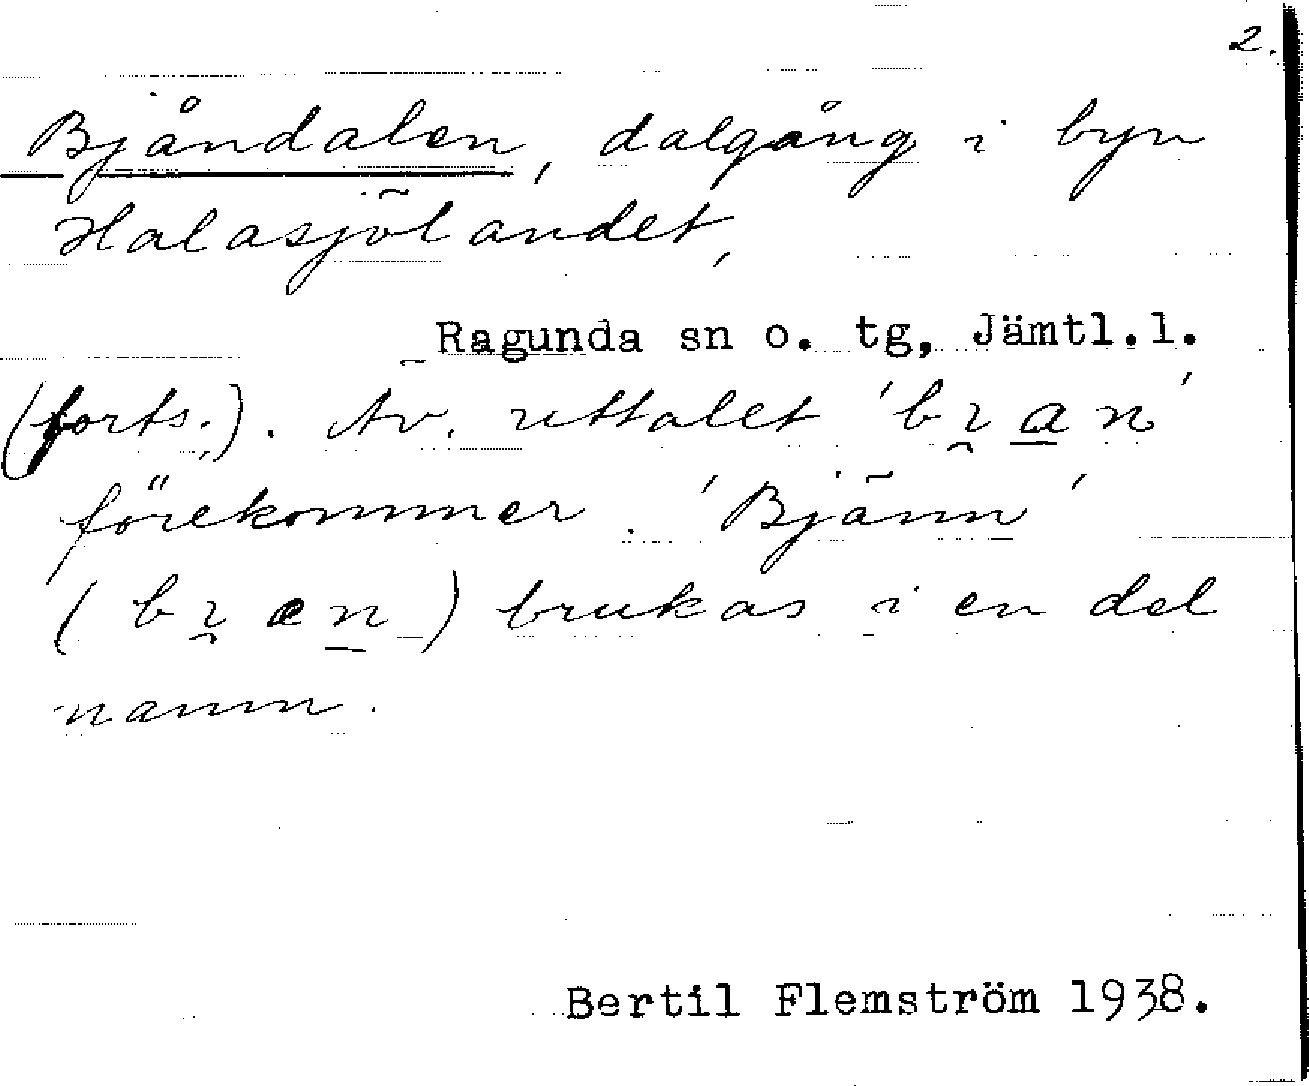 2.
Bjåndalen, dalgång i byn
Halasjölandet,
Ragunda sn o. tg, Jämtl.l.
(forts.). Av. uttalet 'bɿ̯an'
förekommer. 'Bjänn'
(bɿ̯æn) brukas i en del
namn.
Bertil Flemström 1938.